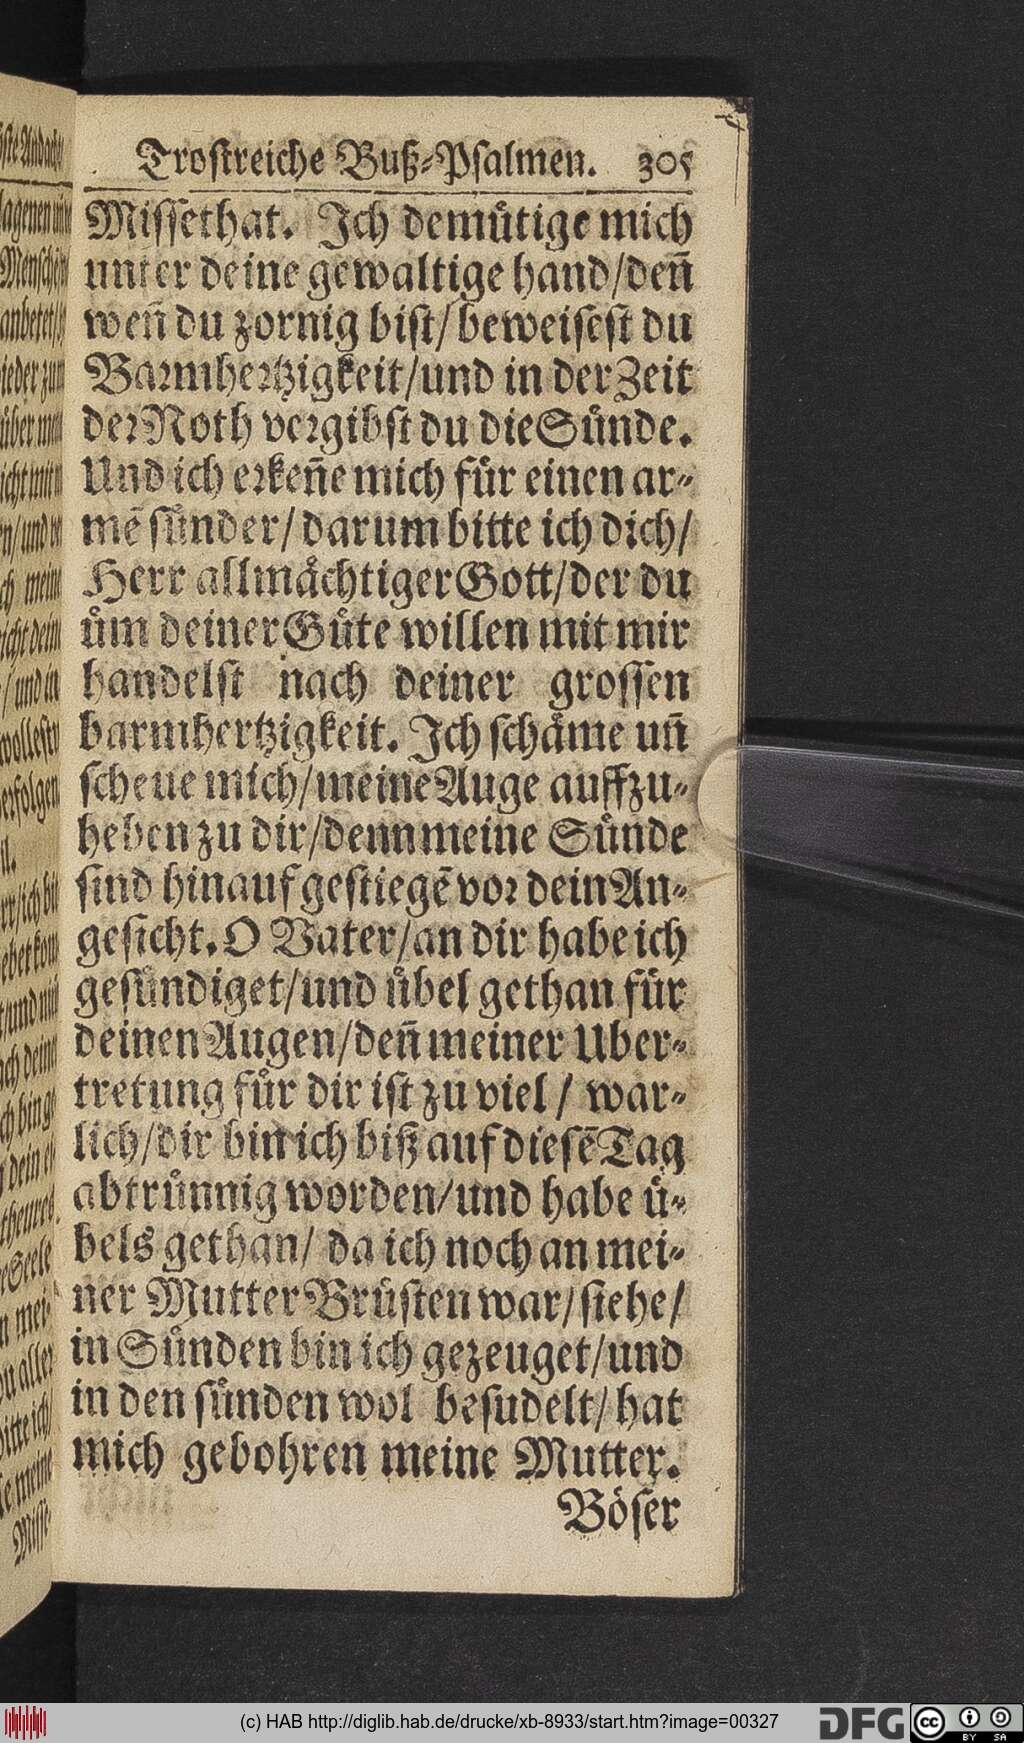 Trostreiche Buß-Psalmen. 305
Missethat. Ich demütige mich
unter deine gewaltige hand/deñ
weñ du zornig bist/beweisest du
Barmhertzigkeit/und in der Zeit
der Noth vergibst du die Sünde.
Und ich erkeñe mich für einen ar-
mẽ sünder/darum bitte ich dich/
Herr allmächtiger Gott/der du
üm deiner Güte willen mit mir
handelst nach deiner grossen
barmhertzigkeit. Ich schäme uñ
scheue mich/meine Auge auffzu-
heben zu dir/denn meine Sünde
sind hinauf gestiegẽ vor dein An-
gesicht. O Vater/an dir habe ich
gesündiget/und übel gethan für
deinen Augen/deñ meiner Uber-
tretung für dir ist zu viel/ war-
lich/dir bin ich biß auf diesẽ Tag
abtrünnig worden/und habe ü-
bels gethan/ da ich noch an mei-
ner Mutter Brüsten war/siehe/
in Sünden bin ich gezeuget/und
in den sünden wol besudelt/hat
mich gebohren meine Mutter.
Böser
(c) HAB http://diglib.hab.de/drucke/xb-8933/start.htm?image=00327
DFG
cc BY SA